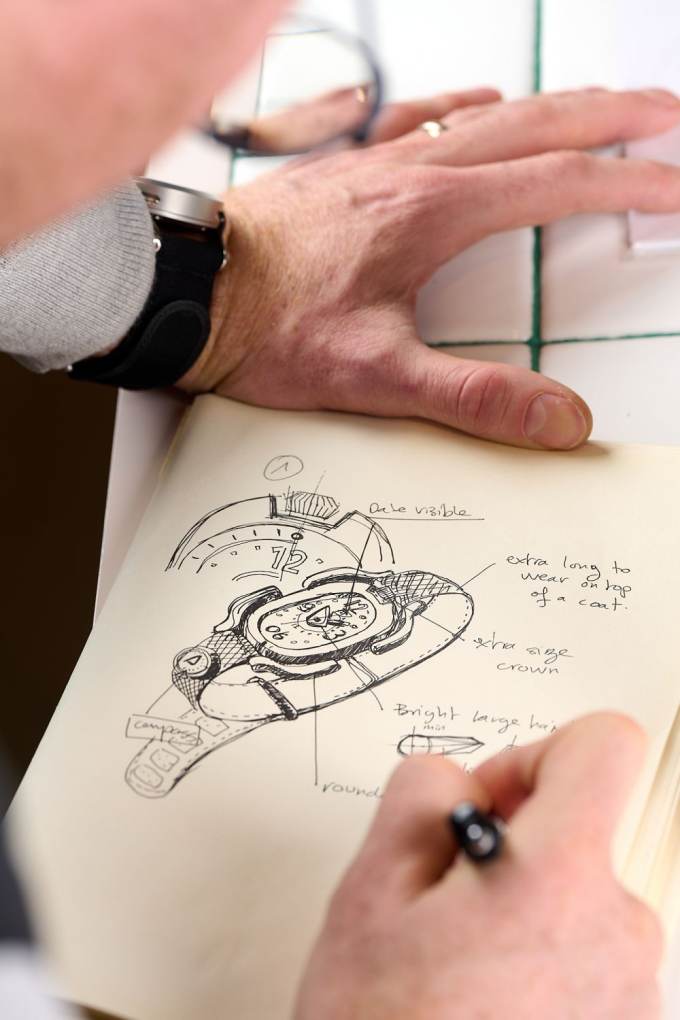 1
Date visible
12
extra long to
wear on top
of a coat.
extra size
crown
Bright large
min
compass
round